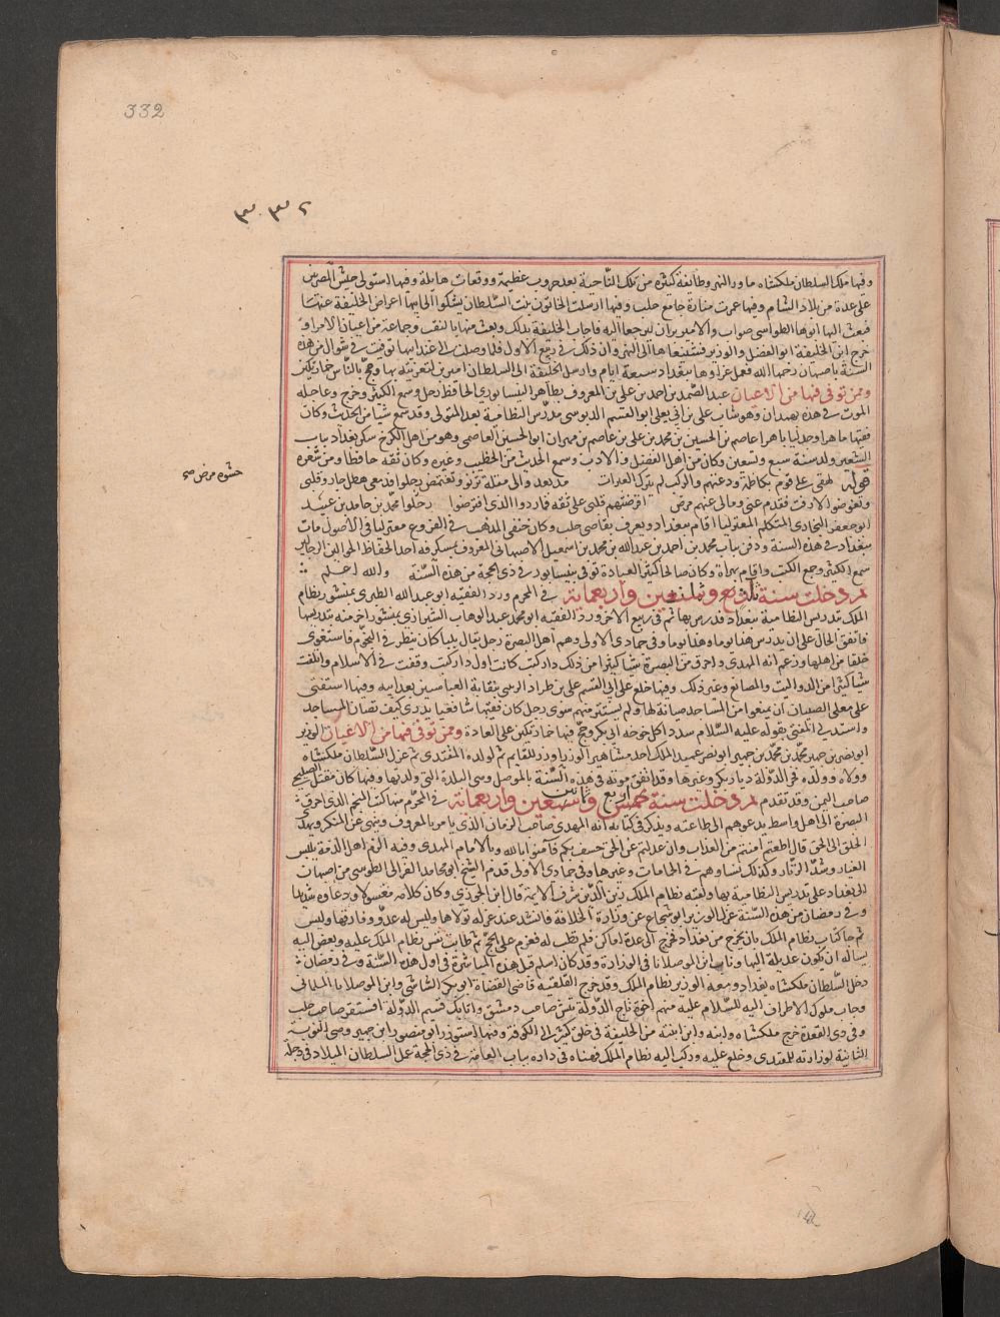 332
٣٣٢
وفيها ملك السلطان ملكشاه ماورالنهر وطايفة كثيره من تلك الناحية بعد حروب عظيمة ووقعات هايلة وفيها استولى جيش المصريين
على عدة من بلاد الشام وفيها عمرت منارة جامع حلب وفيها ارسلت الخاتون بنت السلطان يشكوا الى ابيها اعراض الخليفة عنها
فبعث اليها ابوها الطواسى صواب والامير بزان ليرجعا اليه فاجاب الخليفة بذلك وبعث معها بالنقيب وجماعة من اعيان الامرا و
خرج ابن الخليفة ابو الفضل والوزير فشيعاها الى النهروان ذلك في ربيع الاول فلما وصلت الى عند ابيها توفيت في شوال من هذه
السنة باصبهان رحمها الله فعمل عزاوها ببغداد سبعة ايام وارسل الخليفة الى السلطان اميرين لتعزيته بها وحج بالناس خمارتكين
وممن توفى فيها من الاعيان عبد الصمد بن احمد بن على بن المعروف بطاهر النيسابوري الحافظ رحل وسمع الكثير وخرج وعاجله
الموت في هذه بهمدان وهو شاب على بن ابي يعلى ابو القسم الدبوسى مدرس النظامية بعد المتولى وقد سمع شيا من الحديث وكان
فقيها ماهرا وجدليا باهرا عاصم بن الحسين بن محمد بن على بن عاصم بن مهران ابو الحسين العاصمى وهو من اهل الكرخ سكن بغداد بباب
الشعير ولد سنة سبع وتسعين وكان من اهل الفضل والادب وسمع الحديث من الخطيب وغيره وكان ثقه حافظا ومن شعره
قوله لهفى على قوم بكاظمة ودعتهم والركب لم تترك العبرات مذ بعدوا لى مقلة ترنو وتغتمض رحلوا فدمعى هطل جار وقلبى
وتعوضوا لا ذقت فقدهم عنى ومالى عنهم مرض اقرضتهم قلبى على ثقة فما ردوا الذى اقترضوا رحلوا محمد بن حامد بن عبيد
ابو جعفر البخارى المتكلم المعتزليا اقام ببغداد ويعرف بقاضى حلب وكان حنفى المذهب في الفروع معتزليا في الاصول مات
ببغداد في هذه السنة ودفن بباب محمد بن احمد بن عبدالله بن محمد بن اسمعيل الاصبهانى المعروف بمسكرفه احد الحفاظ الجوالين الرحالين
سمع الكثير وجمع الكتب واقام بهراة وكان صالحا كثير العبادة توفى بنيسابور في ذى الحجة من هذه السنة والله اعلم
ثم دخلت سنة ثلاث وثمانين واربعمائة في المحرم ورد الفقيه ابو عبدالله الطبرى بمنشور نظام
الملك بتدريس النظامية ببغداد فدرس بها ثم في ربيع الاخر ورد الفقيه ابو محمد عبد الوهاب الشيرازى بمنشور اخر منه بتدريسها
فاتفق الحال على ان يدرس هذا يوما وهذا يوما وفي جمادى الاولى دهم اهل البصرة رجل يقال بليا كان ينظر في النجوم فاستغوى
خلقا من اهلها وزعم انه المهدى واحرق من البصرة شيا كثيرا من ذلك دار كتب كانت اول دار كتب وقفت في الاسلام واتلفت
شيا كثيرا من الدواليب والمصانع وغير ذلك وفيها خلع على ابي القسم على بن طراد الزينبى بنقابة العباسيين بعد ابيه وفيها استفتى
على معلمى الصبيان ان يمنعوا من المساجد صيانة لها ولم يستثنوا منهم سوى رجل كان فقيها شافعيا يدرى كيف تصان المساجد
واستدل المفتى بقوله عليه السلام سدوا كل خوخه الى ابى بكر وحج فيها خمارتكين على العادة وممن توفى فيها من الاعيان الوزير
ابو نصر بن جهير محمد بن محمد بن جهير ابو نصر عميد الملك احد مشاهير الوزرا وزر للقايم ثم لولده المقتدى ثم عزل السلطان ملكشاه
وولاه وولده فخر الدولة ديار بكر وغيرها وقد اتفق موته في هذه السنة بالموصل وهى البلدة التى ولد بها وفيها كان مقتل الصليحى
صاحب اليمن وقد تقدم ثم دخلت سنة اربع وثمانين واربعمائة في المحرم منها كتب المنجم الذى احرق
البصرة الى اهل واسط يدعوهم الى طاعته ويذكر في كتابه انه المهدى صاحب الزمان الذى يامر بالمعروف وينهى عن المنكر ويهدى
الخلق الى الحق قال اطعتم امنتم من العذاب وان عدلتم عن الحق خسف بكم فامنوا بالله وبالامام المهدى وفيه الزم اهل الذمة بلبس
الغيار وشد الزنار وكذلك نساوهم في الحمامات وغيرها وفي جمادى الاولى قدم الشيخ ابو حامد الغزالى الطوسى من اصبهان
الى بغداد على تدريس النظامية بها ولقبه نظام الملك زين الدين شرف الايمة قال ابن الجوزى وكان كلامه معسولا وذكاؤه شديدا
وفي رمضان من هذه السنة عزل الوزير ابو شجاع عن وزارة الخلافة فانشد عند عزله تولاها وليس له عدو وفارقها وليس
ثم جا كتاب نظام الملك بان يخرج من بغداد فخرج الى عدة اماكن فلم تطب له فعزم على الحج ثم طابت نفس نظام الملك عليه وبعث اليه
يساله ان يكون عديله اليها وناب ابن الموصلايا في الوزارة وقد كان اسلم قبل هذه المباشرة في اول هذه السنة وفي رمضان
دخل السلطان ملكشاه بغداد ومعه الوزير نظام الملك وقد خرج لتلقيه قاضى القضاة ابو بكر الشاشى وابن الموصلايا المسلمانى
وجات ملوك الاطراف اليه للسلام عليه منهم اخوه تاج الدولة تتش صاحب دمشق واتابك قسيم الدولة اقسنقر صاحب حلب
وفى ذى القعدة خرج ملكشاه وابنه وابن ابنته من الخليفة في خلق كثير الى الكوفة وفيها استوزر ابو منصور ابن جهير وهى النوبة
الثانية لوزارته للمقتدى وخلع عليه وركب اليه نظام الملك فهناه في داره بباب العامة وفي ذى الحجة عمل السلطان الميلاد في دجلة
حشوه مرض صح